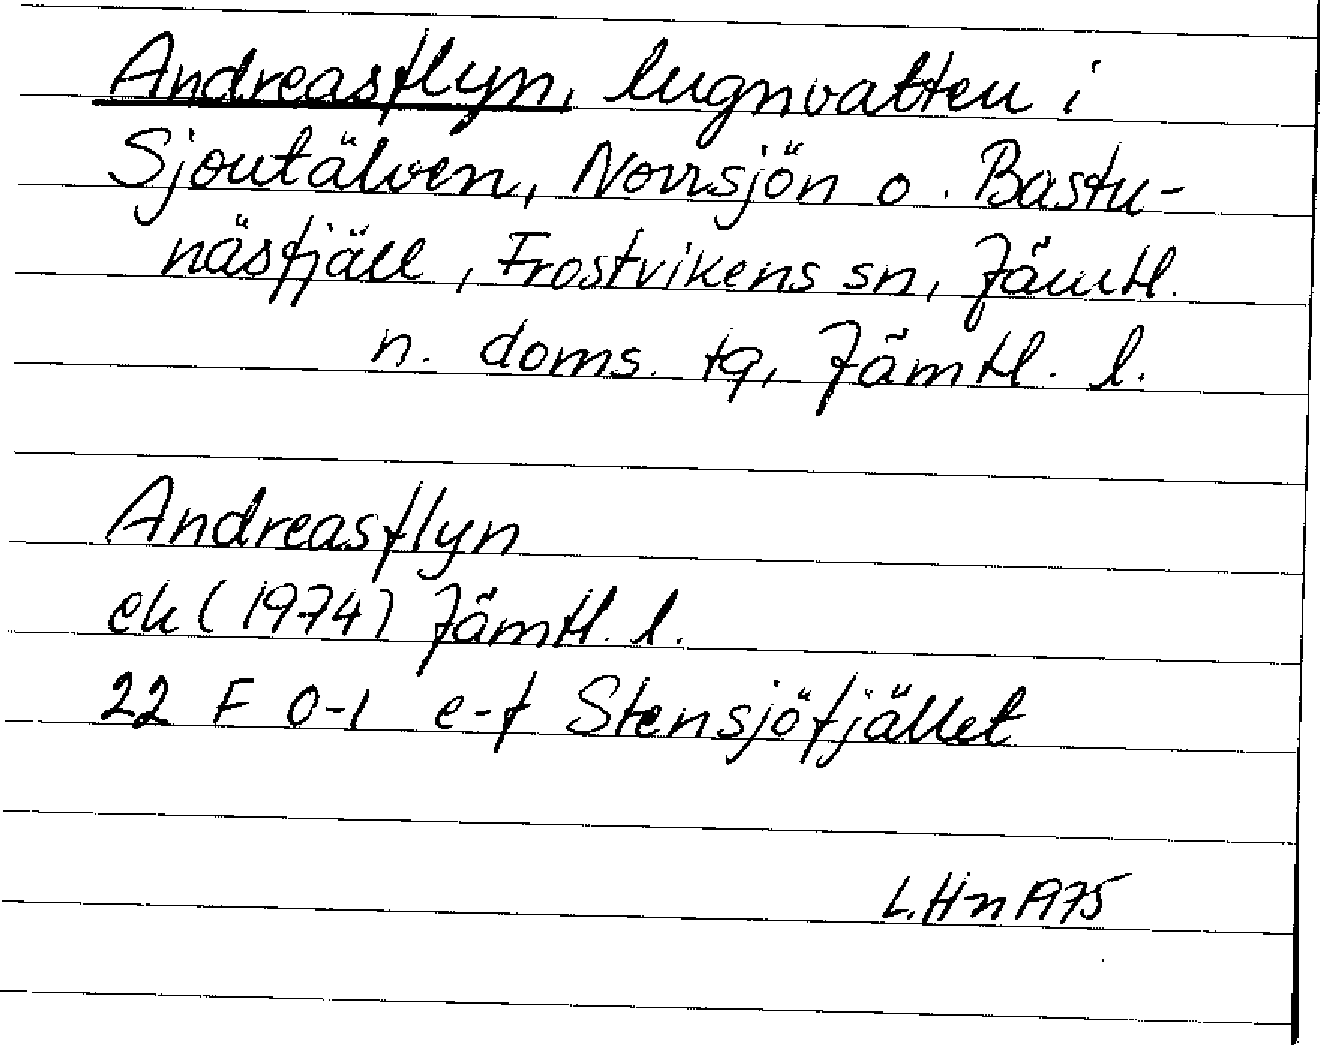 Andreasflyn, lugnvatten i
Sjoutälven, Norrsjön o. Bastu-
näsfjäll, Frostvikens sn, Jämtl.
n. doms. tg, Jämtl. l.
Andreasflyn
ek (1974) Jämtl. l.
22 F 0-1 e-f Stensjöfjället
L.Hn 1975